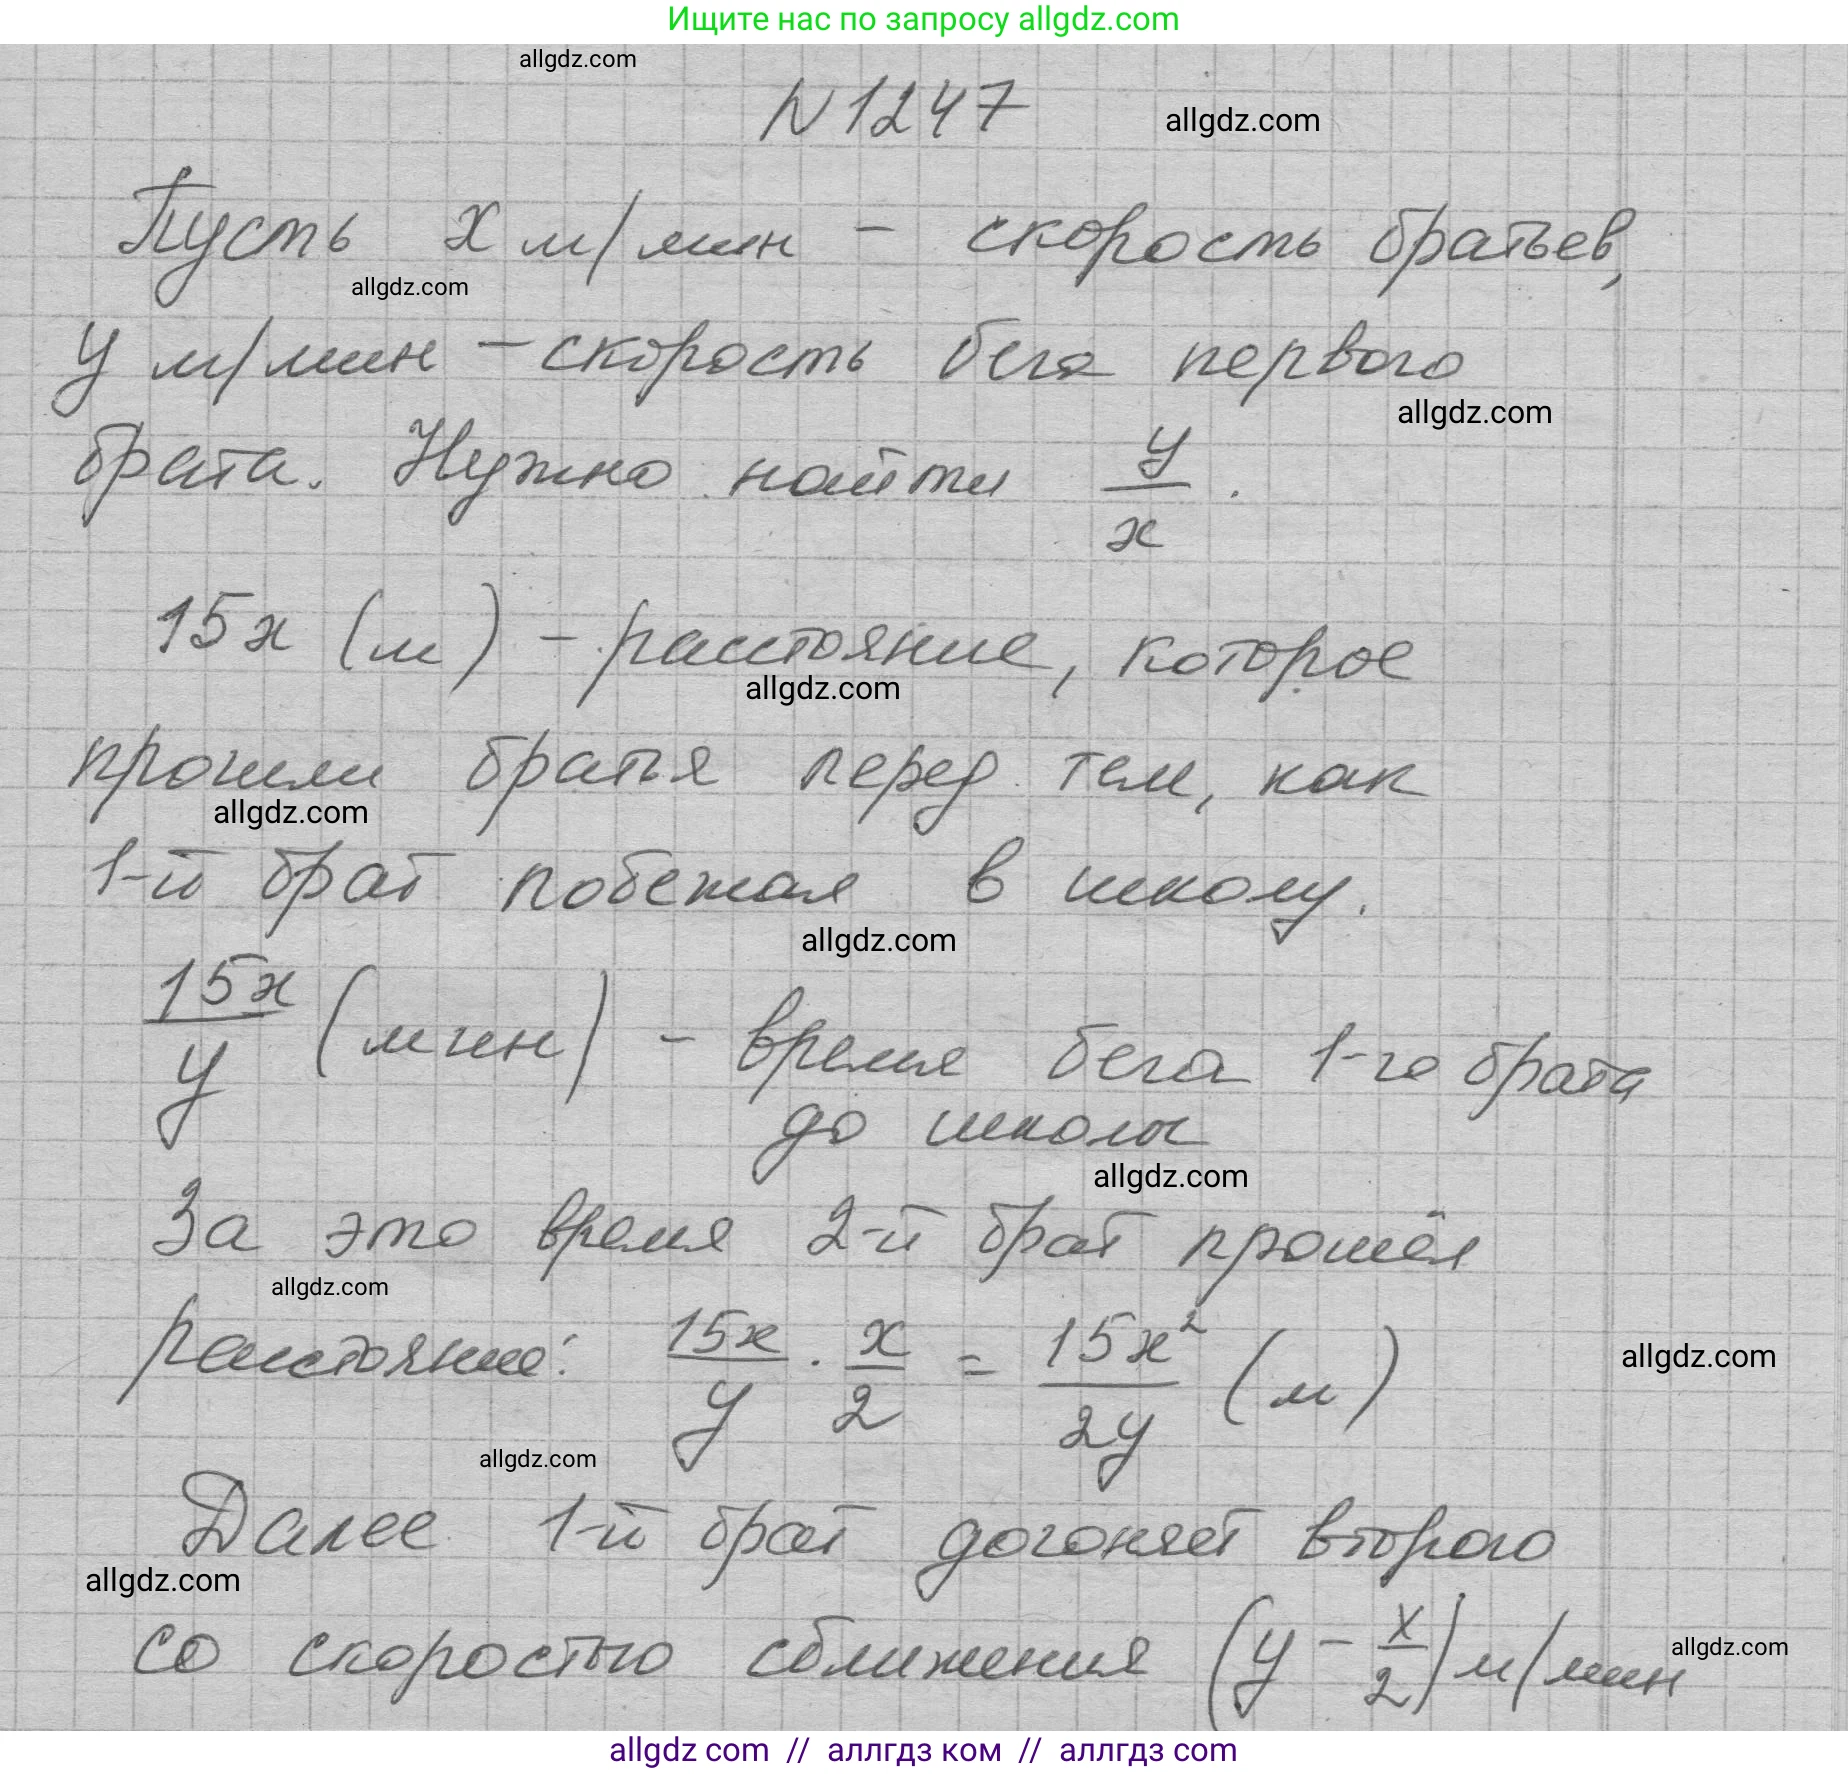 Ищите нас по запросу allgdz.com
allgdz.com
N 1247
allgdz.com
Пусть x м/мин – скорость братьев,
allgdz.com
y м/мин – скорость бега первого
allgdz.com
брата. Нужно найти y/x.
15x (м) – расстояние, которое
allgdz.com
прошли братья перед тем, как
allgdz.com
1-й брат побежал в школу.
allgdz.com
15x/y (мин) – время бега 1-го брата
до школы
allgdz.com
За это время 2-й брат прошёл
allgdz.com
расстояние: 15x/y · x/2 = 15x²/2y (м)
allgdz.com
allgdz.com
Далее 1-й брат догоняет второго
allgdz.com
со скоростью сближения (y – x/2) м/мин
allgdz.com
allgdz com // аллгдз ком // аллгдз com